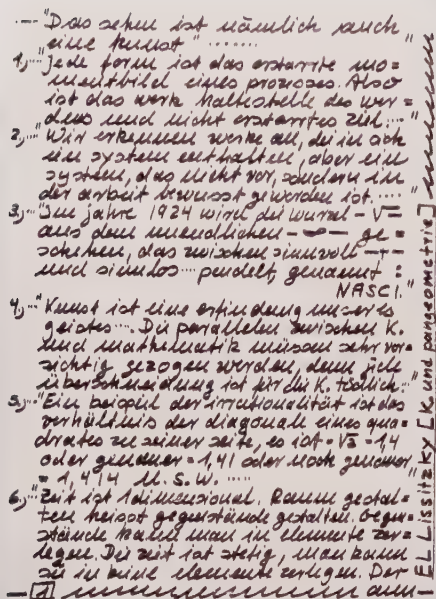 — "Das sehen ist nämlich auch
eine kunst" ........ "
1,..."Jede form ist das erstarrte mo=
mentbild eines prozesses. Also
ist das werk haltestelle des wer=
dens und nicht erstarrtes ziel...."
2,..."Wir erkennen werke an, die in sich
ein system enthalten, aber ein
system, das nicht vor, sondern in
der arbeit bewusst geworden ist....."
3,..."Im jahre 1924 wird die wurzel - √
aus dem unendlichen - ∞ - ge=
schehen, das zwischen sinnvoll - + -
und sinnlos ... pendelt, genannt:
NASCI."
4,..."Kunst ist eine erfindung unseres
geistes.... Die parallelen zwischen K.
und mathematik müssen sehr vor=
sichtig gezogen werden, denn jede
überschneidung ist für die K. tödlich."
5,..."Ein beispiel der irrationalität ist das
verhältnis der diagonale eines qua=
drates zu seiner seite, es ist = √2 = 1,4
oder genauer = 1,41 oder noch genauer
= 1,414 u. s. w. ....."
6,..."Zeit ist 1dimensional. Raum gestal=
ten heisst gegenstände gestalten. Gegen=
stände kann man in elemente zer=
legen. Die zeit ist stetig, man kann
sie in keine elemente zerlegen. Der
— 1 dim
EL Lissitzky [K. und pangeometrie]